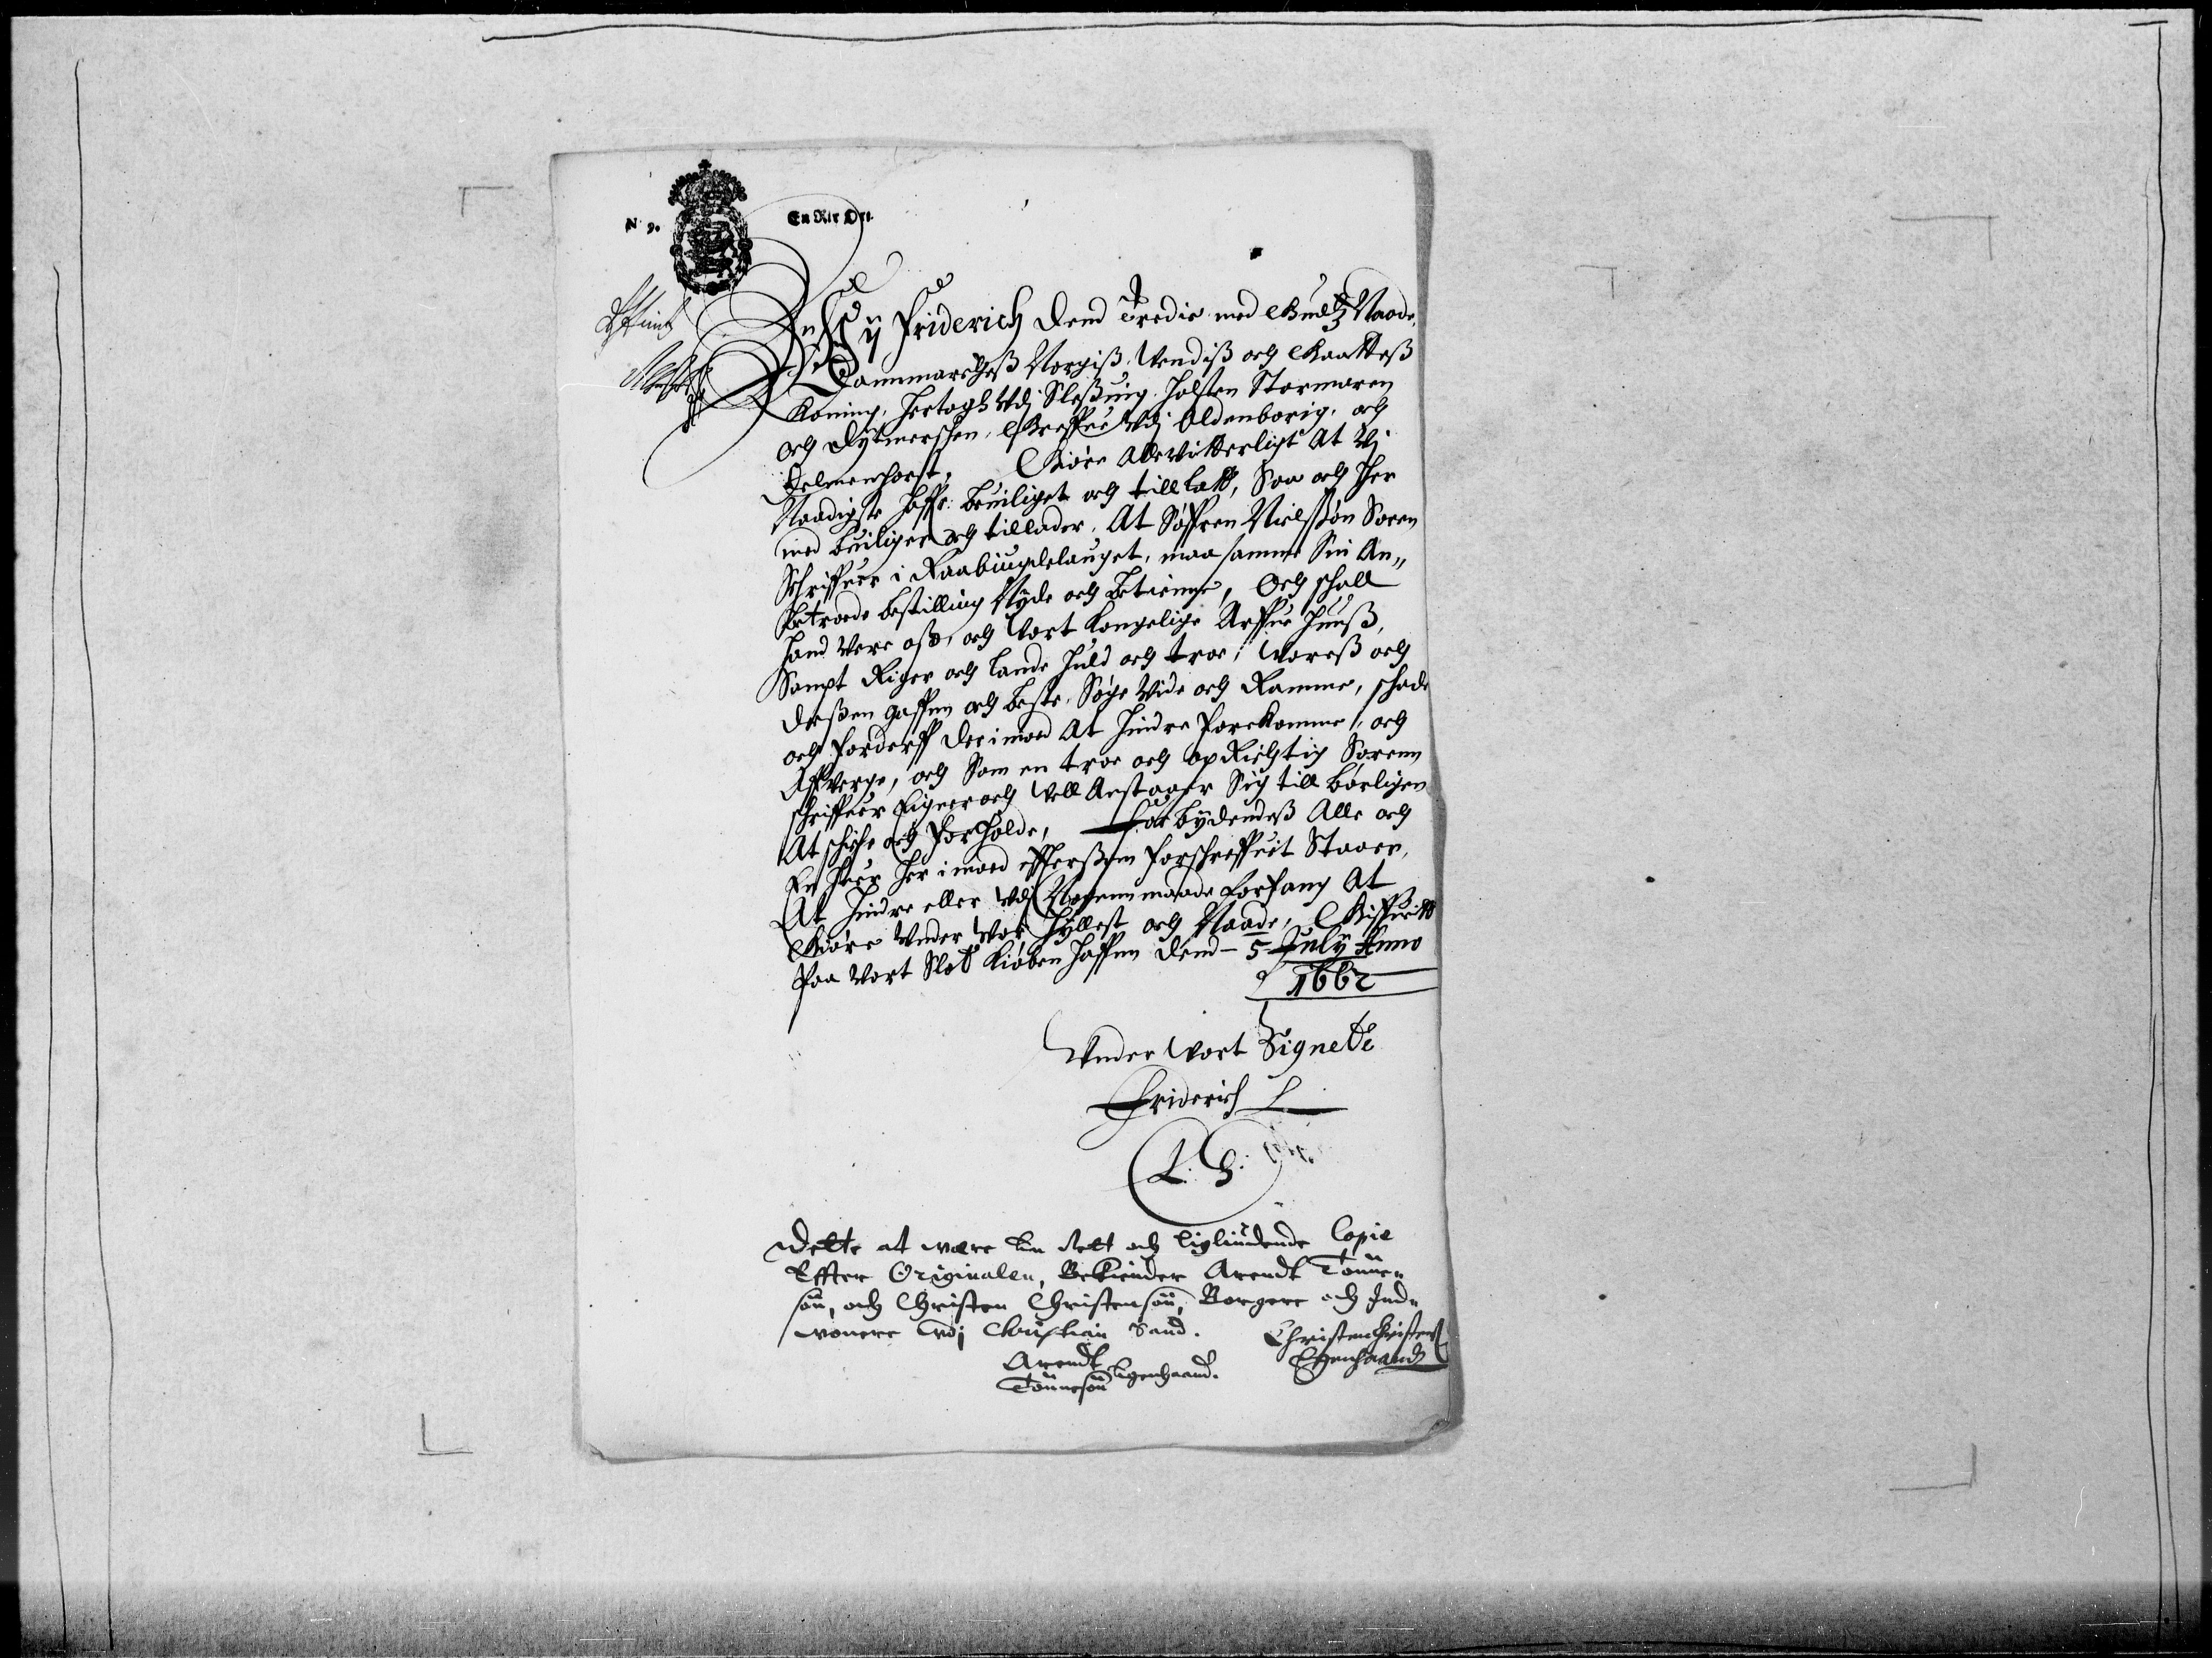 N 9.
En Rix Ort.
Wy Friderich dend Tredie med Gudß Naade,
Dannmarcheß Norgiß Vendiß och Gaatteß
Koning, Hertogh Vdj Sleßuig Holsten Stormaren
och Dytmerschen, Greffue Vdj Oldenborig, och
Delmenhorst, Giöre Alle Vitterligt At Vj
Naadigste haffr Beuiliget och tilladt, Saa och Her
med Beuilger och tillader, At Söffren Nielssön Soren
Schriffuer i Raabiugdelauget, maa samme Sin An„
betroede bestilling Nyde och Betienne, Och schall
hand Vere oß, och Vort Kongelige Arffue Huuß,
Sampt Riger och Lande huld och troe, Voreß och
dereßen gaffun och beste Söge Vide och Ramme, schade
och Forderff der imod At hindre Forekomme, och
Affverge, och Som en troe och opRichtig Sorenn
schriffuer Eigner och Vell Anstaaer Sig till börligen
At schiche och Forholde, Forbydendeß Alle och
En huer her imod effterßom forschreffuit Staaer,
At hindre eller Vdj Nogenn maade Forfang At
Giöre Vnder Vor Hyllest och Naade, Giffuitt
Paa Vort Slot Kiöbenhaffun Dend 5 July Anno
1662
Vnder Vort Signete
Friderich
L. S.
Dette at være En Rett och ligliudende Copie
Effter Originalen, Bekiender Arendt Tönne„
sön, och Christen Christensön, Borgere och Ind„
vonere vdj Christian Sand.
Christen Christens
Egenhaand
Arendt
Tönnesön Egenhaand.